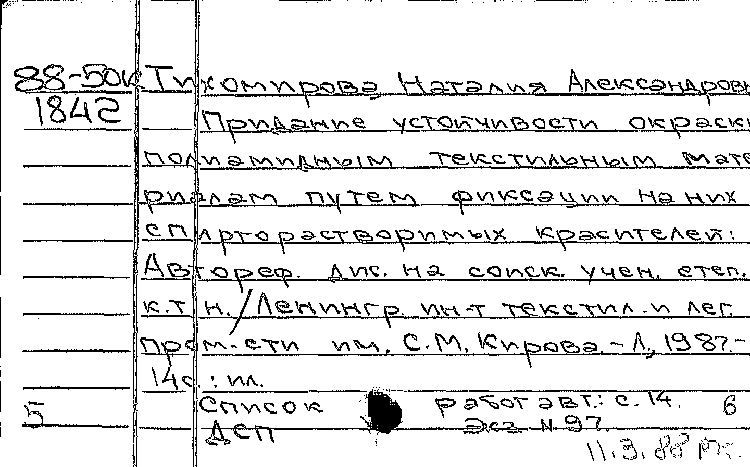 88-50к Тихомирова, Наталия Александровн
1842 Придание устойчивости окраски
полиамидным текстильным мате
риалам путем фиксации на них
спирторастворимых красителей:
Автореф. дис. на соиск. учен. степ.
к.т.н. / Ленингр. ин-т текстил. и лег.
пром-сти им. С.М. Кирова. - Л., 1987. -
14с.: ил.
5 Список работ авт.: с. 14. 6
ДСП Экз. N 97.
11.3.88